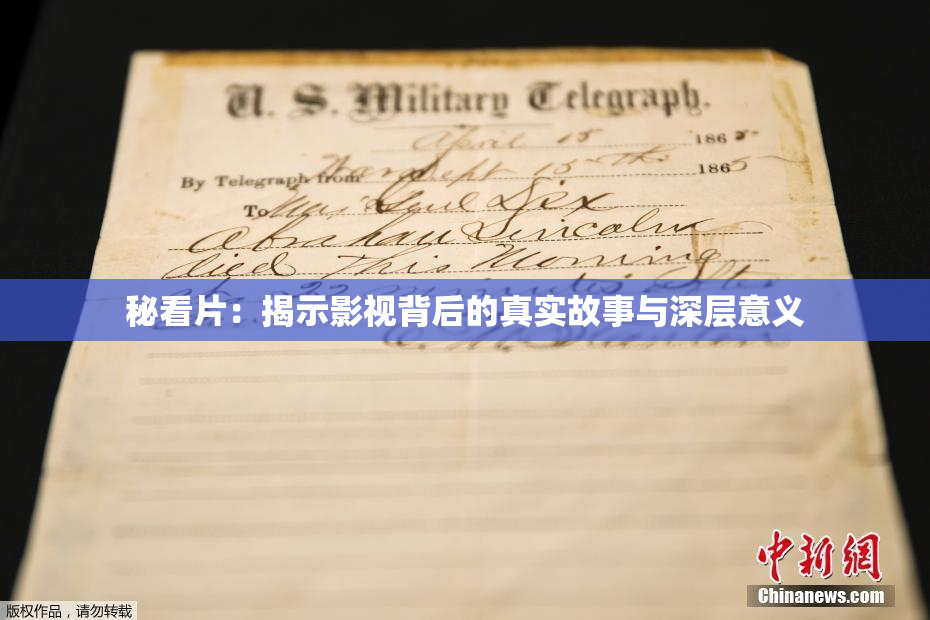 U. S. Military Telegraph.
April 15 1865
By Telegraph from War Dept 15th 1865
To Maj Genl Dix
Abraham Lincoln
died This Morning
22 minutes after
秘看片：揭示影视背后的真实故事与深层意义
E. M. Stanton
中新網
Chinanews.com
版权作品，请勿转载